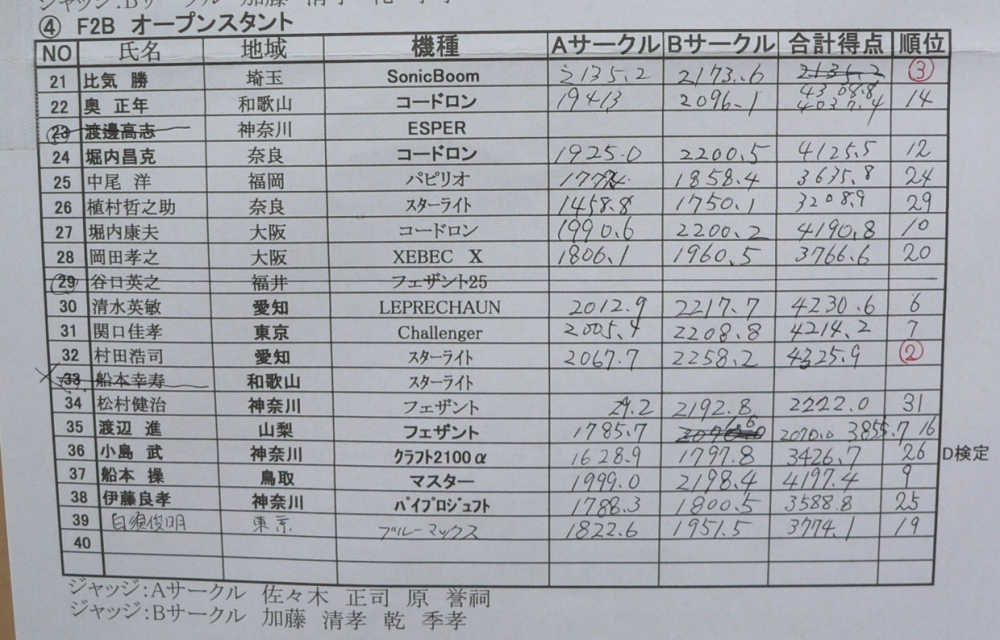 ジャッジ:Bサークル 加藤 清孝 乾 季孝
④ F2B オープンスタント
NO 氏名 地域 機種 Aサークル Bサークル 合計得点 順位
21 比気 勝 埼玉 SonicBoom 2135.2 2173.6 2135.2 4308.8 ③
22 奥 正年 和歌山 コードロン 1941.3 2096.1 4037.4 14
23 渡邊高志 神奈川 ESPER
24 堀内昌克 奈良 コードロン 1925.0 2200.5 4125.5 12
25 中尾 洋 福岡 パピリオ 1858.4 3635.8 24
26 植村哲之助 奈良 スターライト 1458.8 1750.1 3208.9 29
27 堀内康夫 大阪 コードロン 1990.6 2200.2 4190.8 10
28 岡田孝之 大阪 XEBEC X 1806.1 1960.5 3766.6 20
29 谷口英之 福井 フェザント25
30 清水英敏 愛知 LEPRECHAUN 2012.9 2217.7 4230.6 6
31 関口佳孝 東京 Challenger 2005.4 2208.8 4214.2 7
32 村田浩司 愛知 スターライト 2067.7 2258.2 4325.9 ②
33 船本幸寿 和歌山 スターライト
34 松村健治 神奈川 フェザント 29.2 2192.8 2222.0 31
35 渡辺 進 山梨 フェザント 1785.7 2070.0 3855.7 16
36 小島 武 神奈川 クラフト2100α 1628.9 1797.8 3426.7 26 D検定
37 船本 操 鳥取 マスター 1999.0 2198.4 4197.4 9
38 伊藤良孝 神奈川 パイプロジュフト 1788.3 1800.5 3588.8 25
39 白須俊明 東京 ブルーマックス 1822.6 1951.5 3774.1 19
40
ジャッジ:Aサークル 佐々木 正司 原 誉祠
ジャッジ:Bサークル 加藤 清孝 乾 季孝